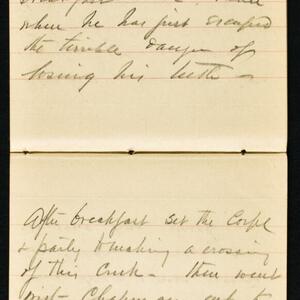 when he has just escaped
the terrible danger of
losing his teeth –
After breakfast set the Corpl
& party to making a crossing
of this Creek – then went